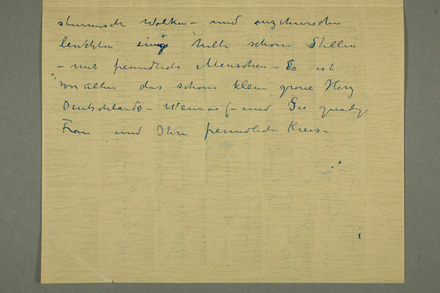 stürmisch Wolken – und inzwischen
leuchten einig helle schöne Stellen
– mit freundlich Menschen. So ist
vor Allem das schöne klein grosse Herz
Deutschlands – Weimar – und Sie gnädig
Frau und Ihr freundlich Kreis –